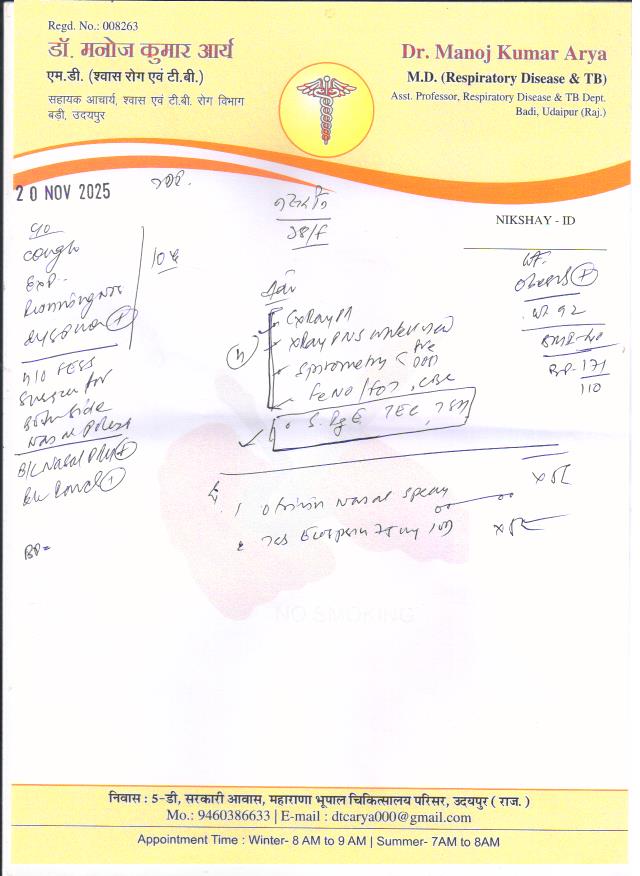 Regd. No.: 008263
डॉ. मनोज कुमार आर्य
एम.डी. (श्वास रोग एवं टी.बी.)
सहायक आचार्य, श्वास एवं टी.बी. रोग विभाग
बड़ी, उदयपुर
Dr. Manoj Kumar Arya
M.D. (Respiratory Disease & TB)
Asst. Professor, Respiratory Disease & TB Dept.
Badi, Udaipur (Raj.)
20 NOV 2025
NIKSHAY - ID
C/o
cough
Exp..
Running nose
dyspnoea (+)
H/o FESS
Surgery for
Both side
nasal polyps
B/L Nasal
B/L
BP=
/F
Adv
CxRay PA
XRay PNS
Spirometry < Pre
Post
FeNO / FOT, CBC
S. IgE TEC,
Wt 92
BP - 171
110
1 Otrivin nasal spray
2
NO SMOKING
निवास : 5-डी, सरकारी आवास, महाराणा भूपाल चिकित्सालय परिसर, उदयपुर ( राज. )
Mo.: 9460386633 | E-mail : dtcarya000@gmail.com
Appointment Time : Winter- 8 AM to 9 AM | Summer- 7AM to 8AM